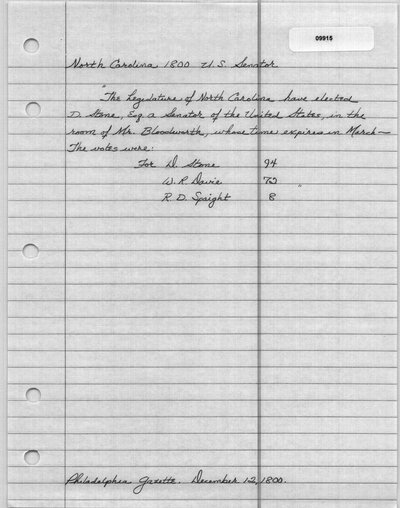 09915
North Carolina 1800 U.S. Senator
"The Legislature of North Carolina have elected
D. Stone, Esq a Senator of the United States, in the
room of Mr. Bloodworth, whose time expires in March—
The votes were:
For D. Stone 94
W. R. Davie 72
R. D. Spaight 8"
Philadelphia Gazette. December 12, 1800.